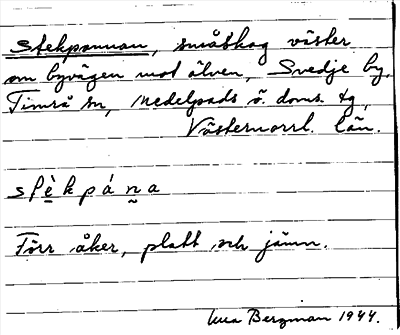 Stekpannan, småskog väster
om byvägen mot älven, Svedje by,
Timrå sn, Medelpads ö. doms. tg,
Västernorrl. län.
stè̱kpáṉa
Förr åker, platt och jämn.
Bergman 1944.